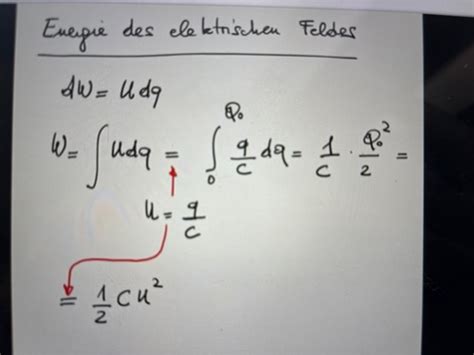 Energie des elektrischen Feldes
dW = U dq
W = ∫ U dq = ∫₀^Q₀ q/C dq = 1/C · Q₀²/2 =
U = q/C
= 1/2 C U²